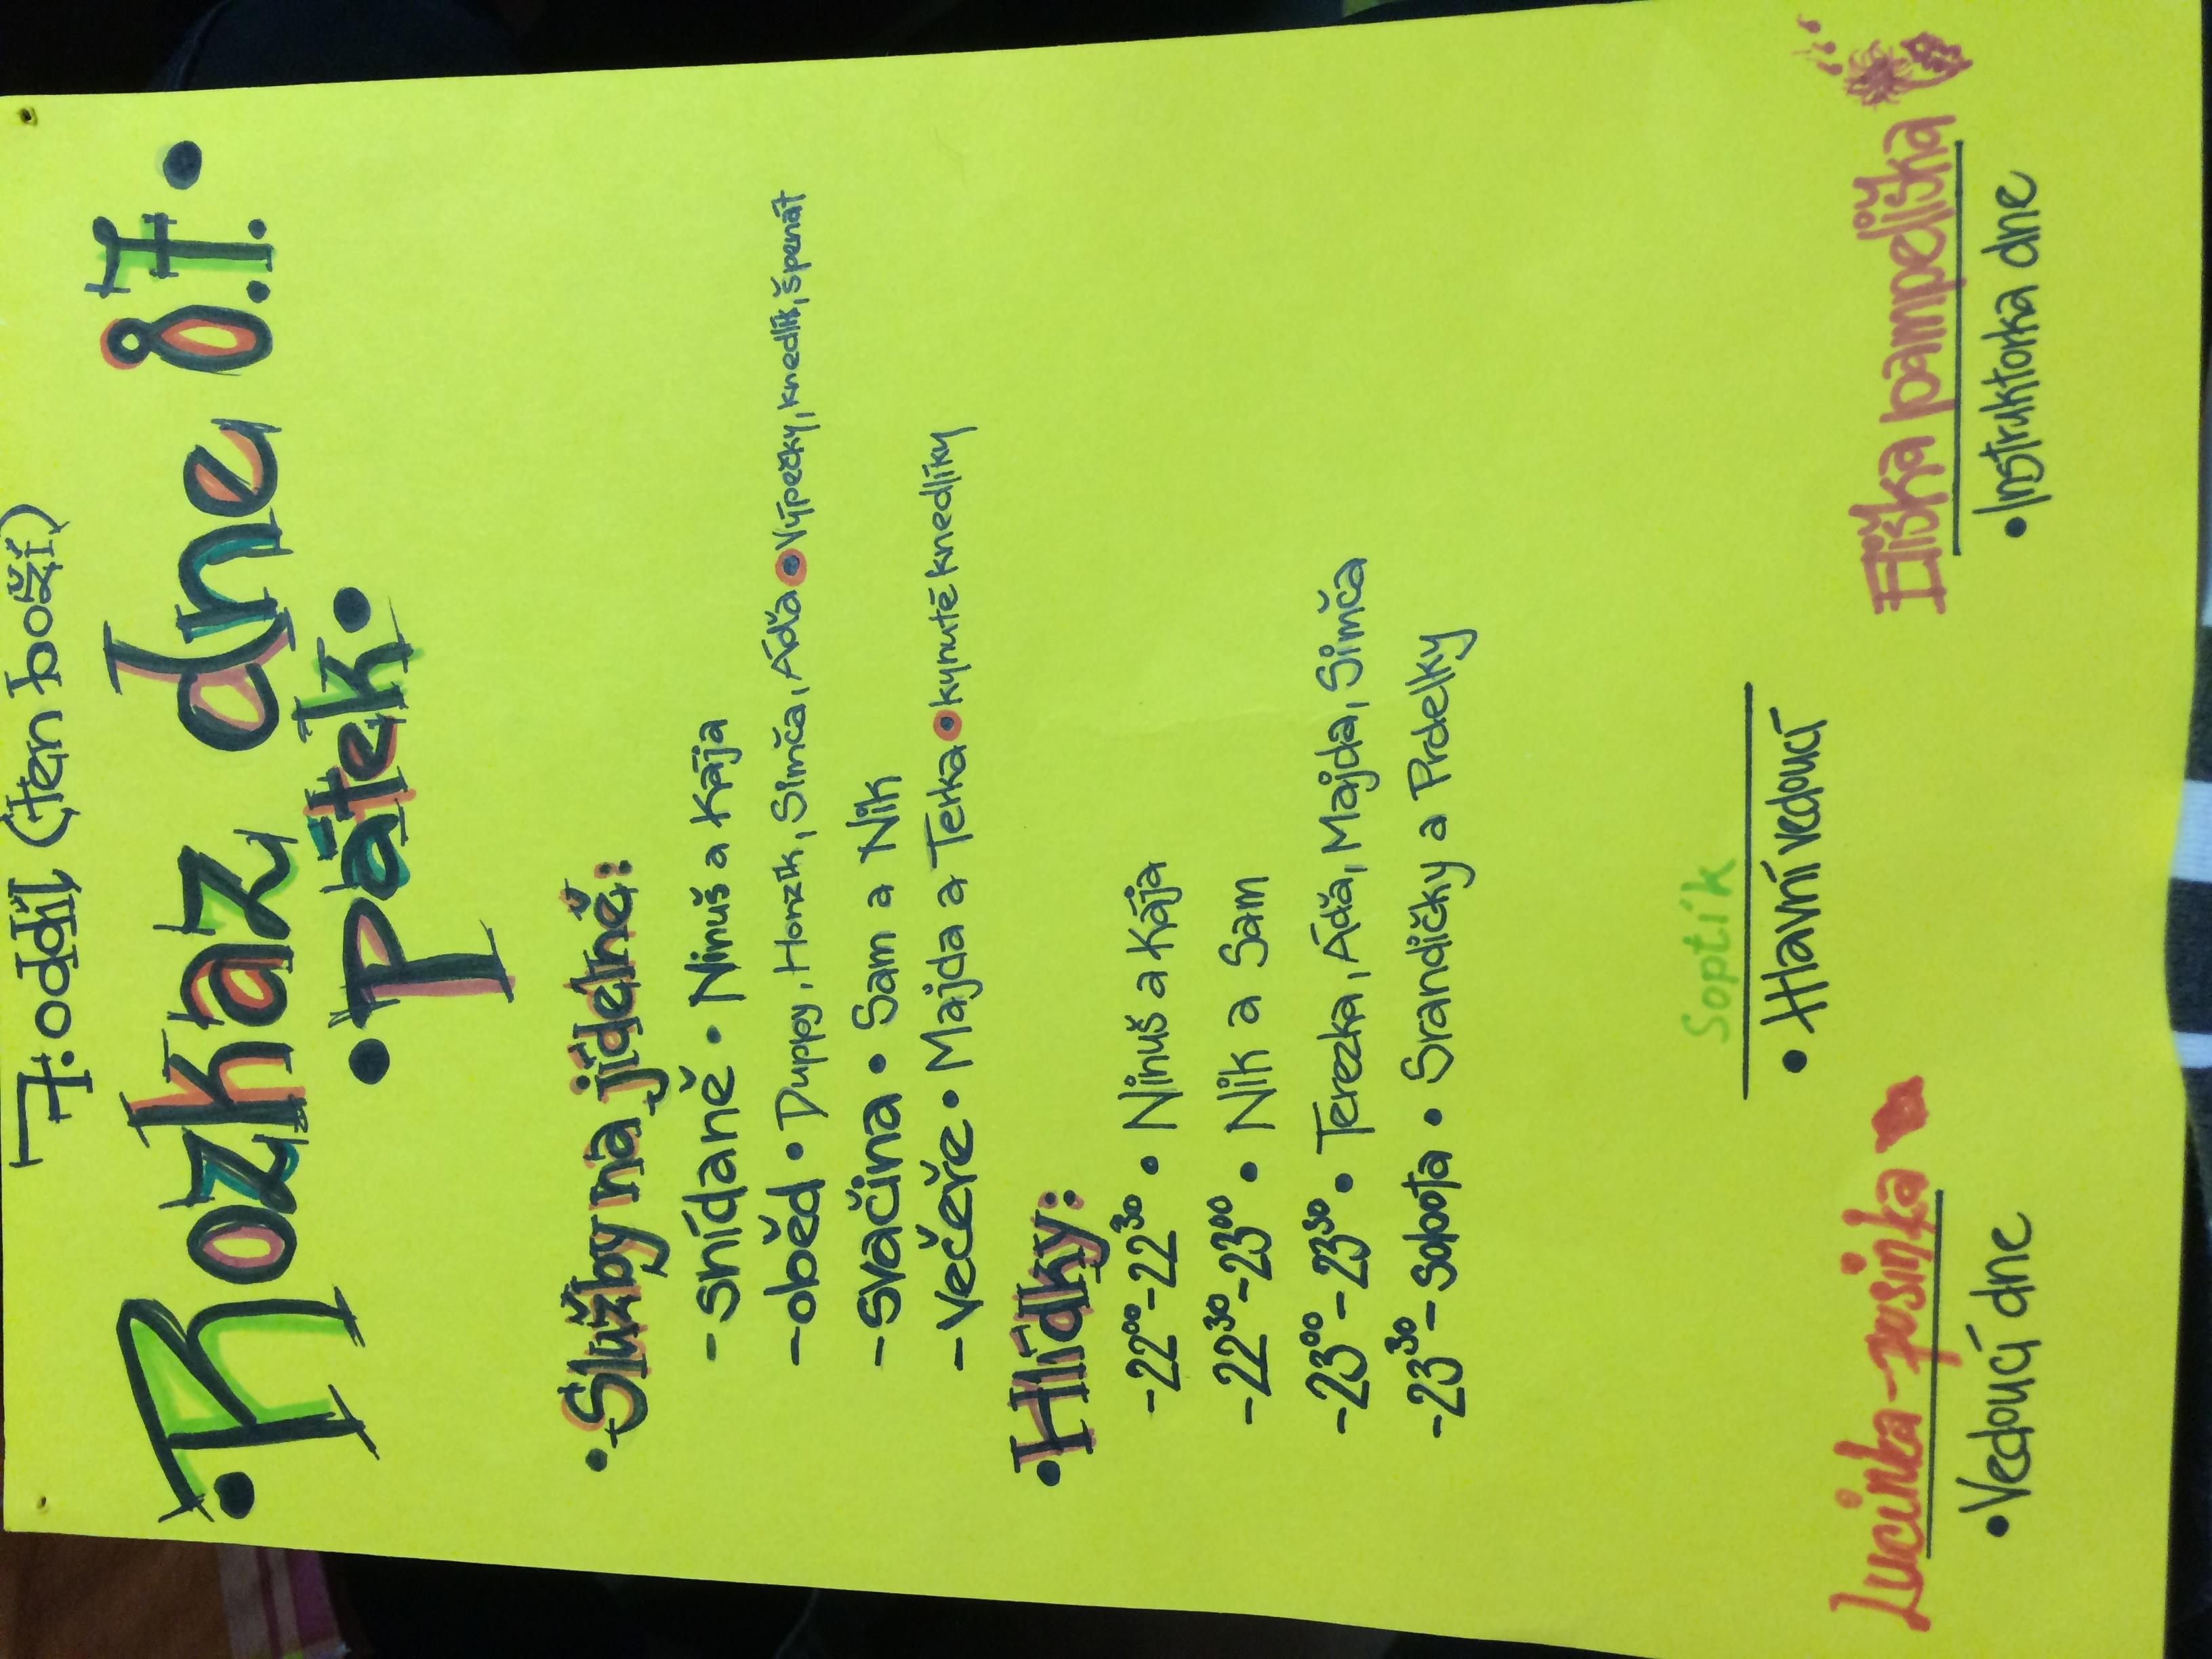 7. oddíl (ten boží)
• Rozkaz dne 8.7. •
• Pátek •
• Služby na jídelně:
- snídaně • Ninuš a Kája
- oběd • Duppy, Honzík, Simča, Áďa • Výpečky, knedlík, špenát
- svačina • Sam a Nik
- večeře • Majda a Terka • kynuté knedlíky
• Hlídky:
- 22⁰⁰ - 22³⁰ • Ninuš a Kája
- 22³⁰ - 23⁰⁰ • Nik a Sam
- 23⁰⁰ - 23³⁰ • Terezka, Áďa, Majda, Simča
- 23³⁰ - Sobota • Srandičky a Prdelky
Soptík
• Hlavní vedoucí
Lucinka - pusinka
• Vedoucí dne
Eliška pampeliška
• Instruktorka dne